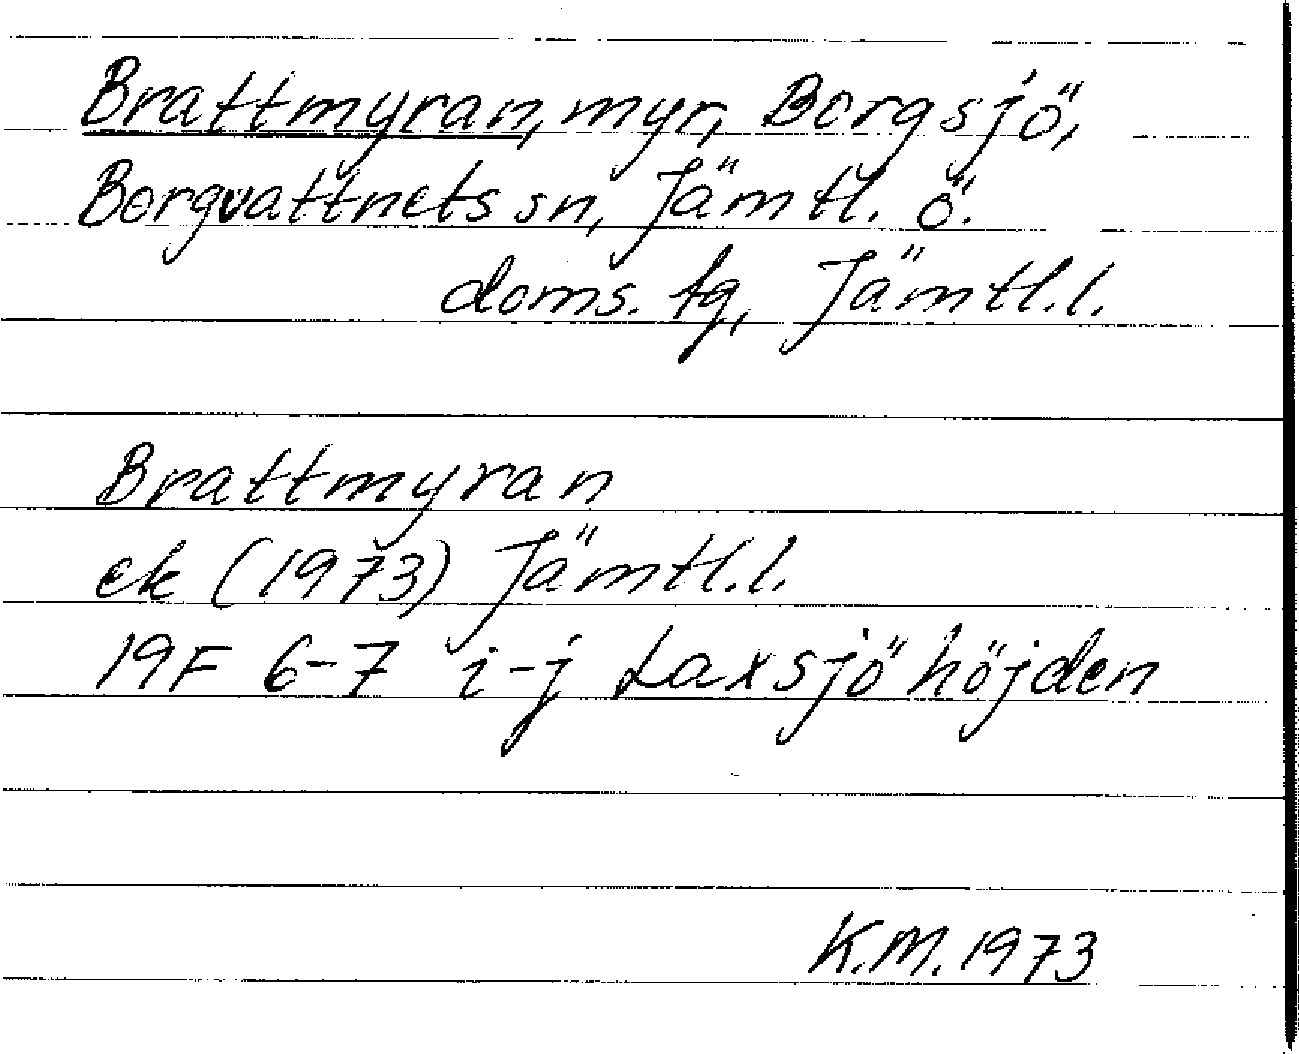 Brattmyran, myr, Borgsjö,
Borgvattnets sn, Jämtl. ö.
doms. tg, Jämtl. l.
Brattmyran
ek (1973) Jämtl. l.
19F 6-7 i-j Laxsjöhöjden
K.M. 1973